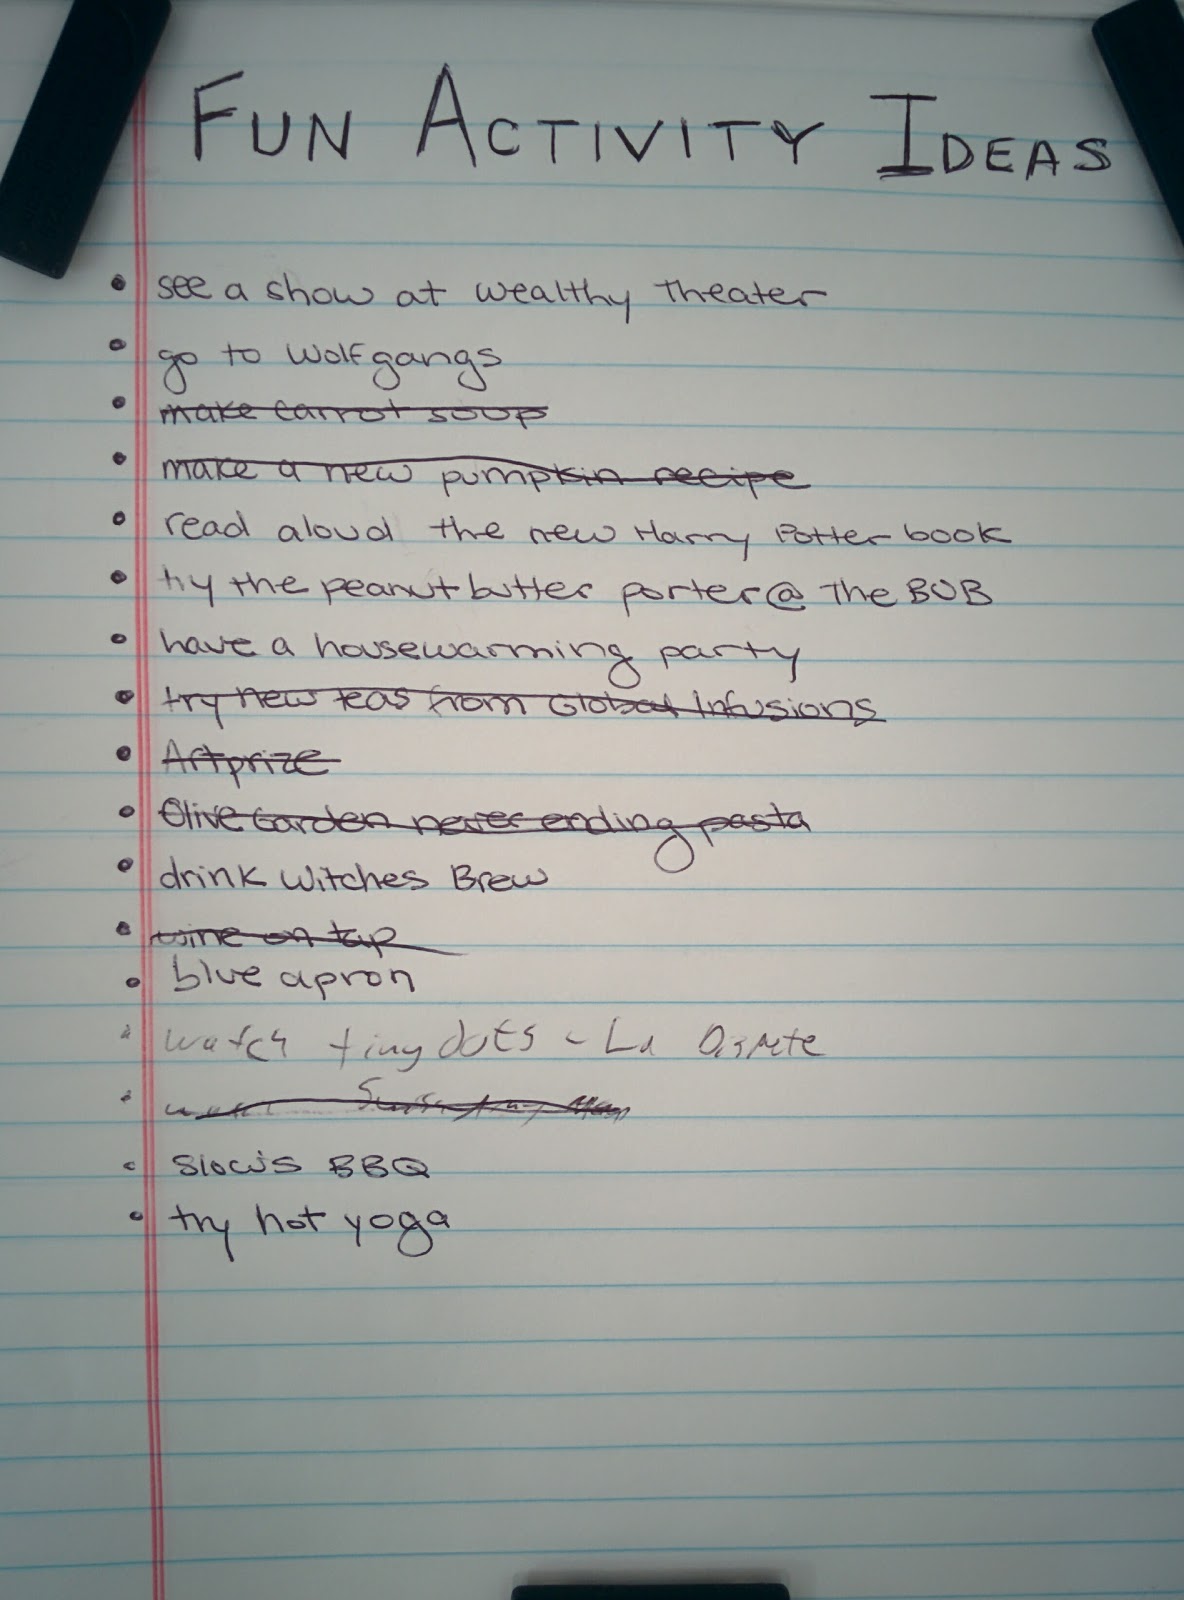 FUN ACTIVITY IDEAS
• see a show at wealthy theater
• go to Wolfgangs
• make carrot soup
• make a new pumpkin recipe
• read aloud the new Harry Potter book
• try the peanut butter porter @ The BOB
• have a housewarming party
• try new teas from Global Infusions
• Artprize
• Olive Garden never ending pasta
• drink Witches Brew
• wine on tap
• blue apron
• watch tiny dots - La
• Slow's BBQ
• try hot yoga